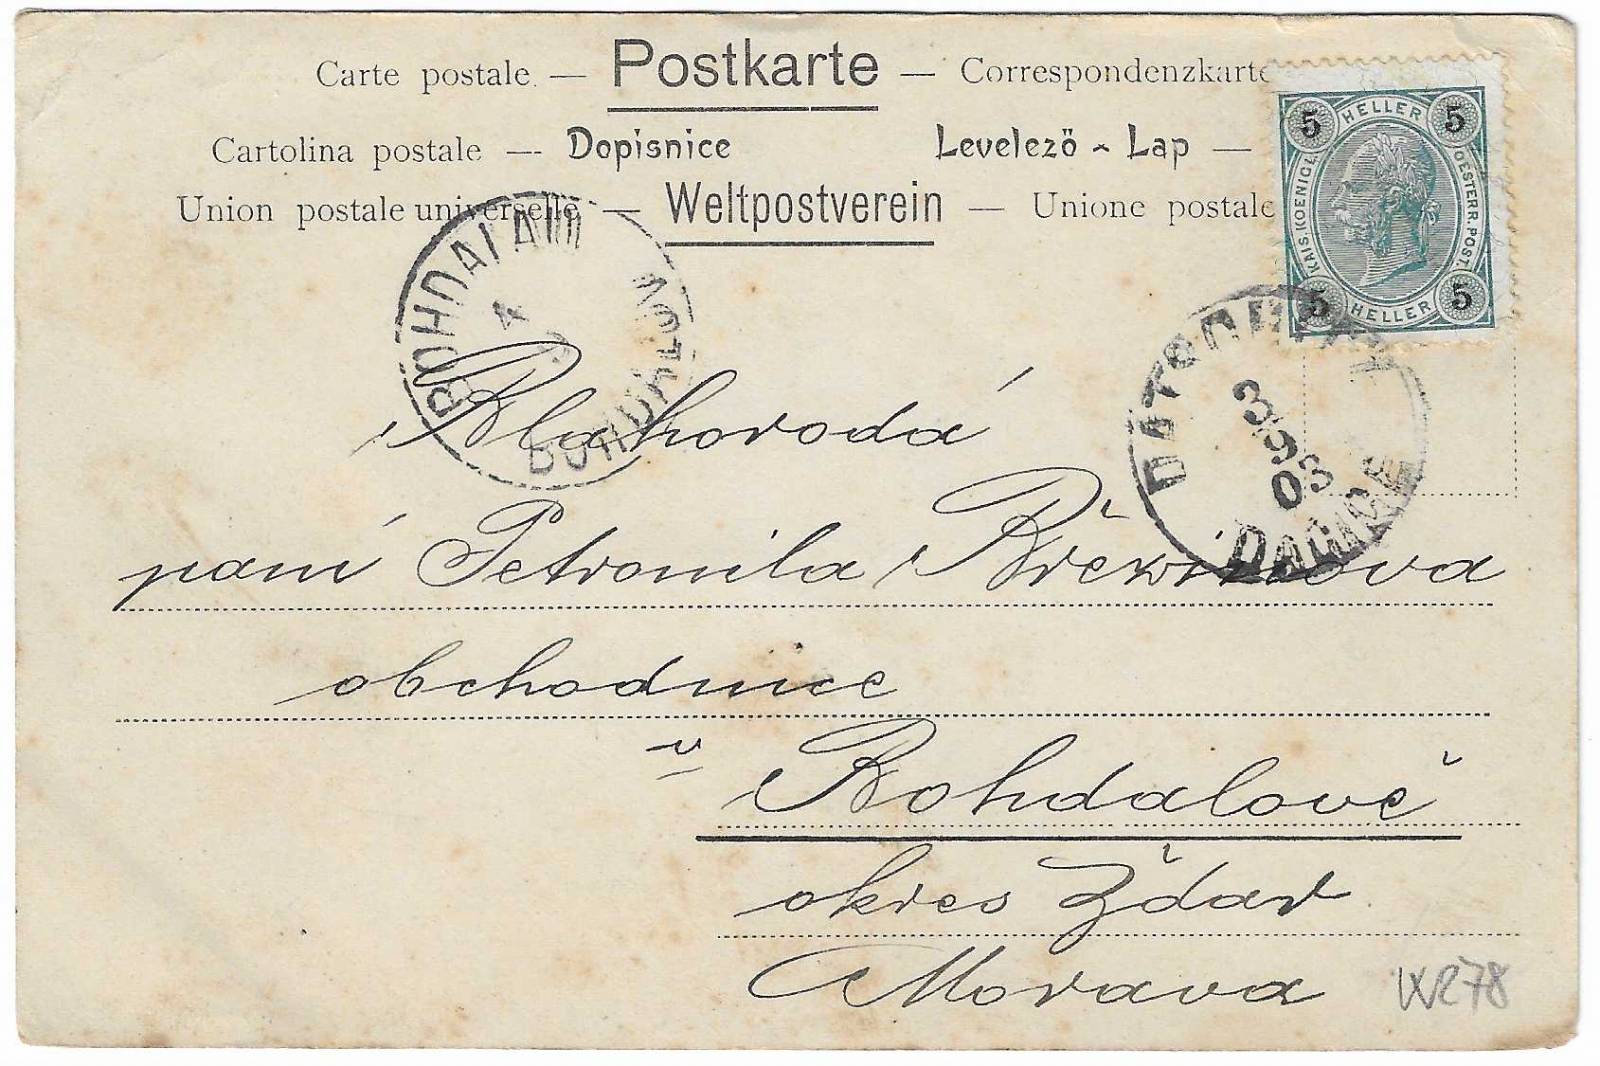 Carte postale — Postkarte — Correspondenzkarte
Cartolina postale — Dopisnice Levelező - Lap —
Union postale universelle — Weltpostverein — Unione postale
5 HELLER 5
KAIS. KOENIGL. OESTERR. POST.
5 HELLER 5
BOHDALAU
4
BOHDALOV
3
9
03
DAČICE
Blahorodá
paní Petronila Březinova
obchodnice
v Bohdalově
okres Ždár
Morava
W278